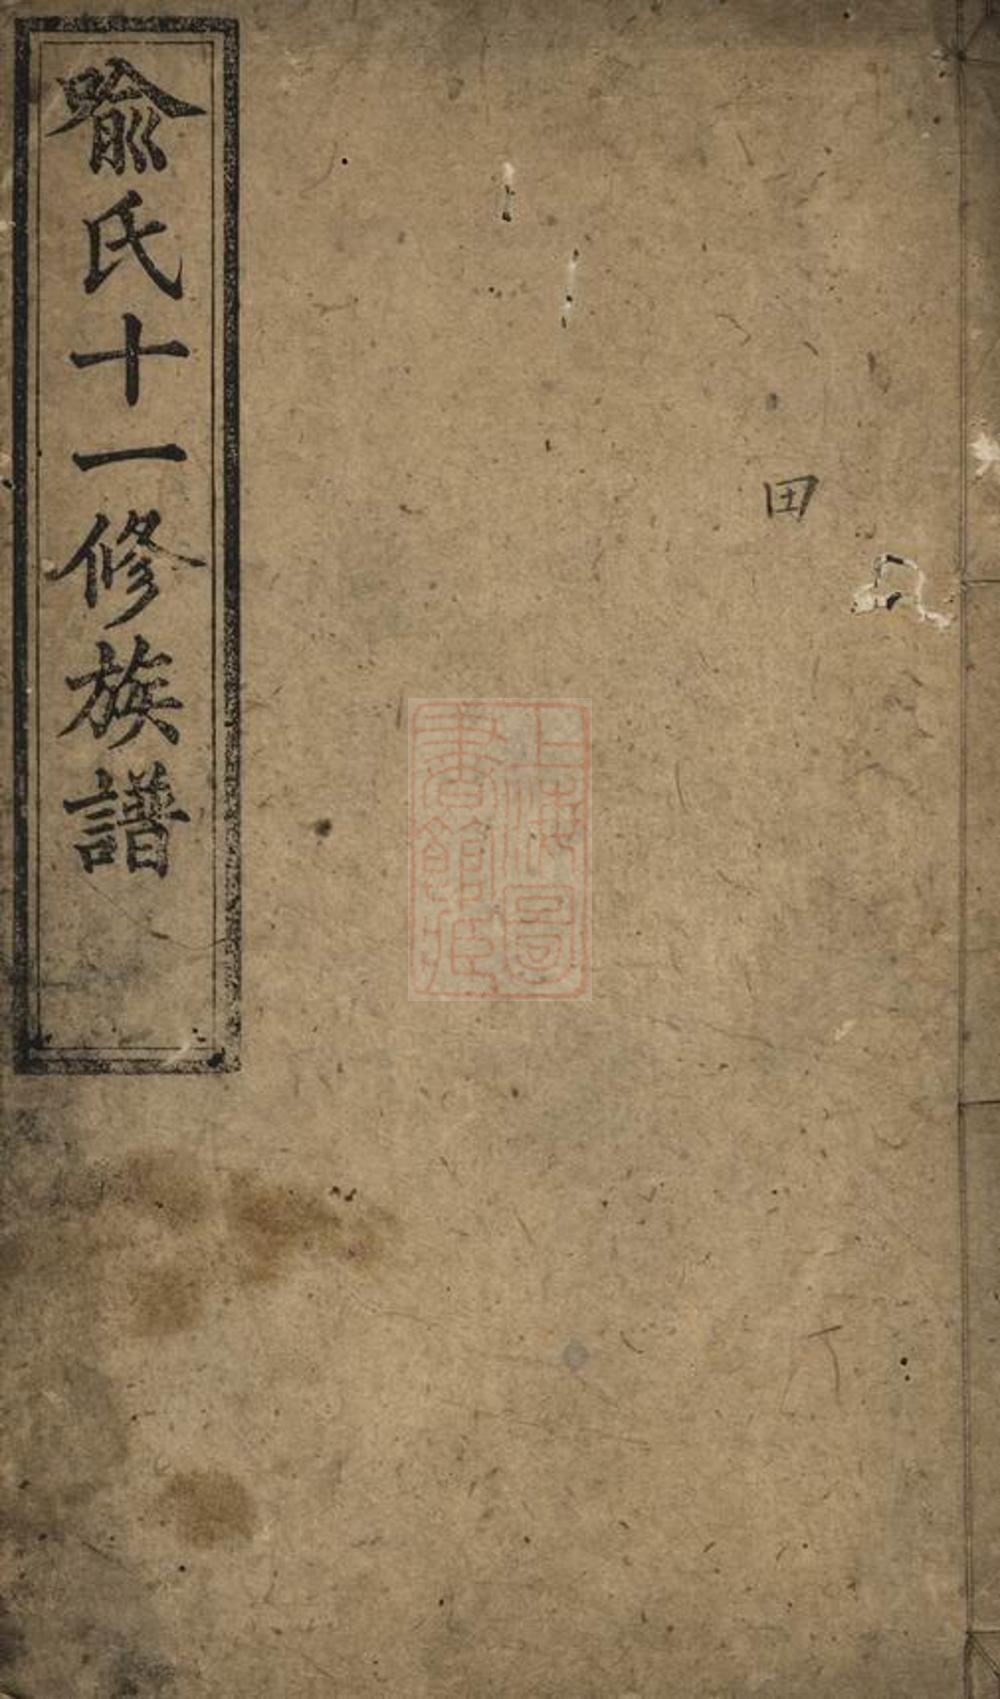 田
喻氏十一修族譜
上海圖
書館藏